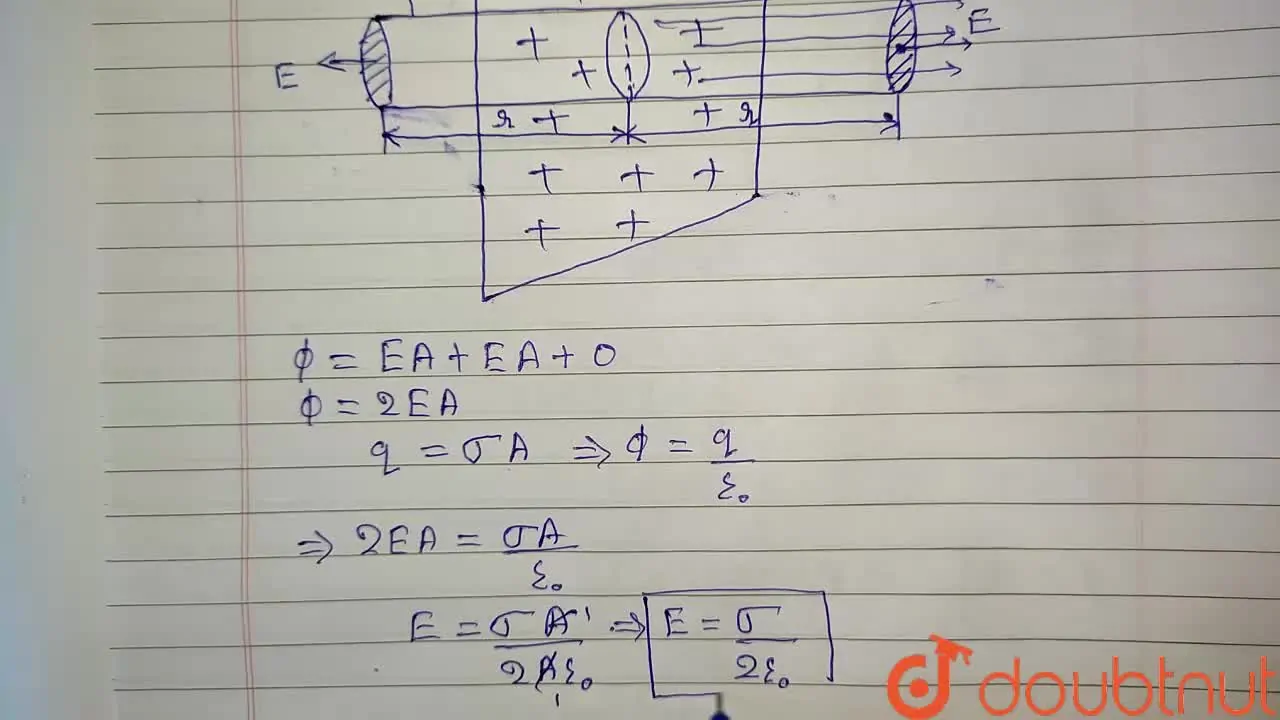 E + + E
+ +
r + + r
+ + +
+ +
ϕ = EA + EA + 0
ϕ = 2EA
q = σA ⇒ ϕ = q/ε₀
⇒ 2EA = σA/ε₀
E = σA¹/2A₁ε₀ ⇒ E = σ/2ε₀
doubtnut